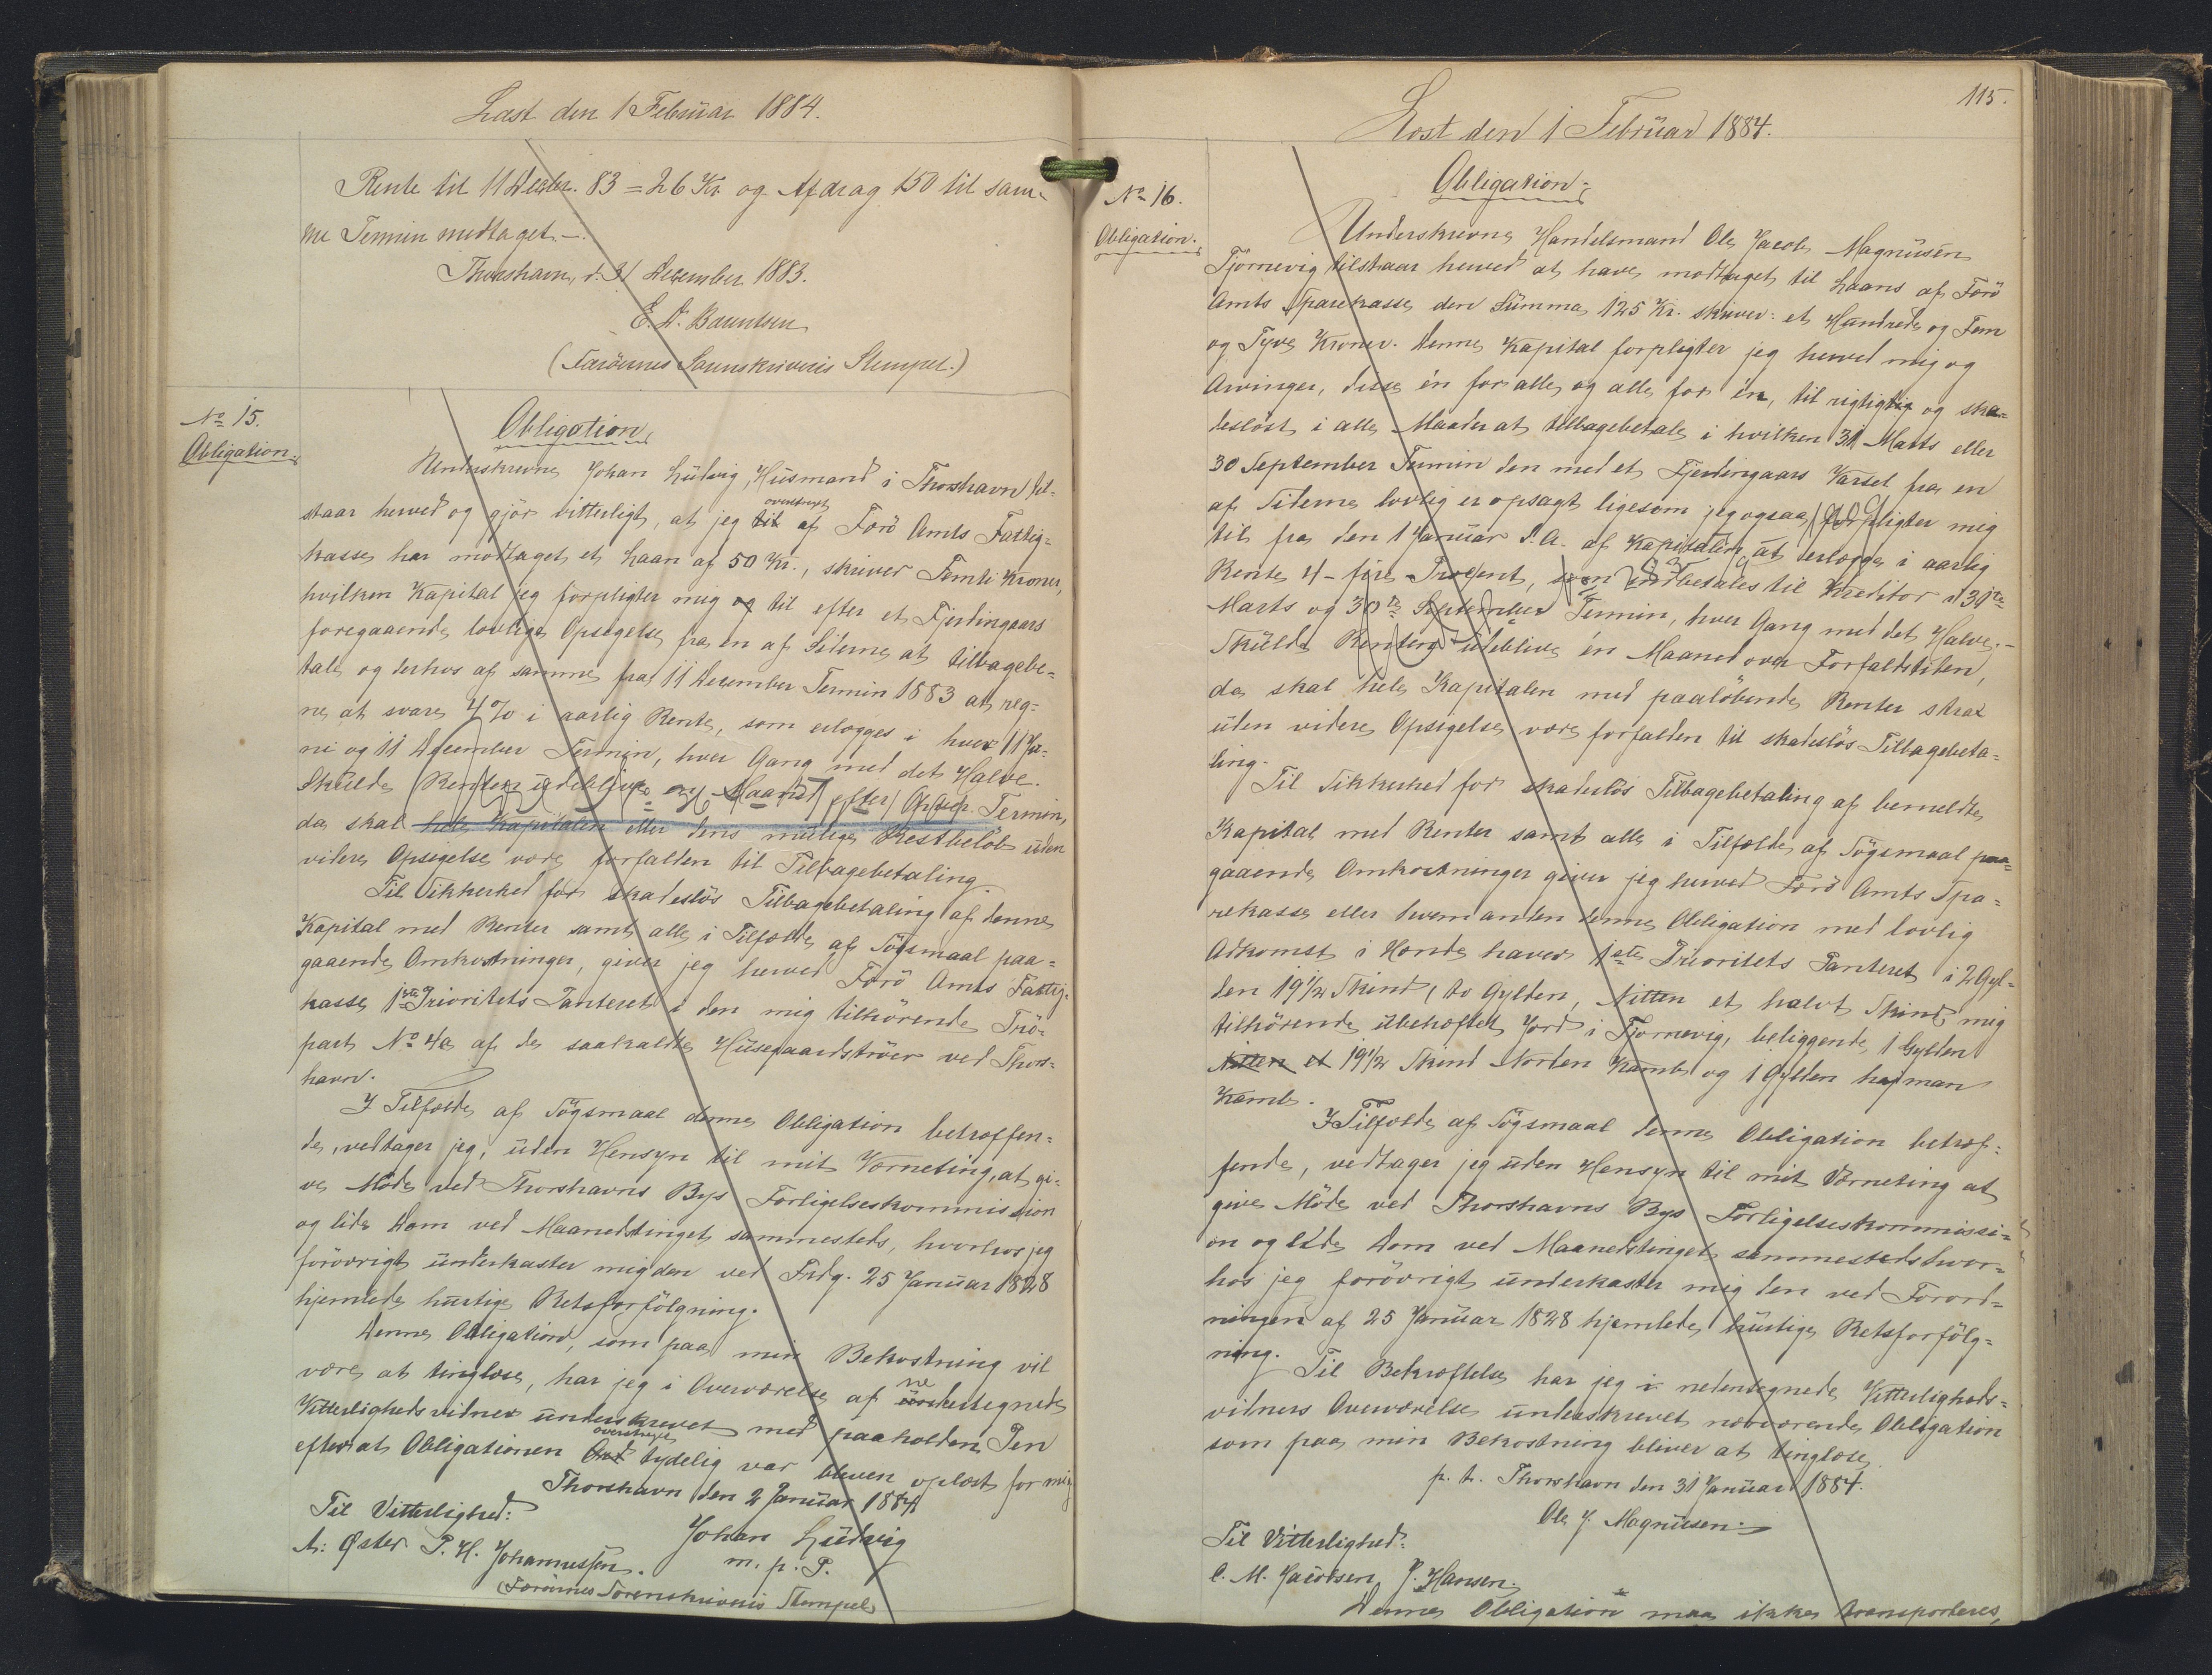 Læst den 1 Februar 1884.
Rente til 11 Decbr. 83 = 26 Kr. og Afdrag 150 til sam-
me Termin modtaget.-
Thorshavn, d. 31 December 1883.
E. A. Bærentsen
(Færöernes Sorenskriveris Stempel.)
No 15.
Obligation.
Obligation
Underskrevne Johan Ludvig, Husmand i Thorshavn til-
staar herved og gjör vitterligt, at jeg til af Færö Amts Fattig-
overstreget
kasse har modtaget et Laan af 50 Kr., skriver Femti Kroner,
hvilken Kapital jeg forpligter mig og til efter et Fjerdingaars
foregaaende lovlige Opsigelse fra en af Siderne at tilbagebe-
tale og derhos af samme fra 11 December Termin 1883 at reg-
ne at svare 4% i aarlig Rente, som erlægges i hver 11 Ju-
ni og 11 December Termin, hver Gang med det Halve.
Skulde Renten udeblive en Maaned efter Termin,
da skal hele Kapitalen eller dens mulige Restbelöb uden
videre Opsigelse være forfalden til Tilbagebetaling.
Til Sikkerhed for skadeslös Tilbagebetaling af denne
Kapital med Renter samt alle i Tilfælde af Sögsmaal paa-
gaaende Omkostninger, giver jeg herved Færö Amts Fattig-
kasse 1ste Prioritets Panteret i den mig tilhörende Trö-
part No 4a af de saakaldte Husegaardströer ved Thors-
havn.
I Tilfælde af Sögsmaal denne Obligation betræffen-
de, vedtager jeg, uden Hensyn til mit Værneting, at gi-
ve Möde ved Thorshavns Bys Forligelseskommission
og lide Dom ved Maanedstinget sammesteds, hvorhos jeg
forövrigt underkaster mig den ved Frdg. 25 Januar 1828
hjemlede hurtige Retsforfölgning.
Denne Obligation, som paa min Bekostning vil
være at tinglæse, har jeg i Overværelse af undertegnede
ne
Vitterlighedsvidner underskrevet med paaholden Pen
efterat Obligationen tydelig var bleven oplæst for mig
overstreget
Thorshavn den 2 Januar 1884
Til Vitterlighed:
Johan Ludvig
A: Öster P. H. Johannessen.
m. p. P.
(Færöernes Sorenskriveris Stempel
115.
Læst den 1 Februar 1884.
No 16.
Obligation.
Obligation.
Underskrevne Handelsmand Ole Jacob Magnusen
Tjörnevig tilstaar herved at have modtaget til Laans af Færö
Amts Sparekasse den Summa 125 Kr. skriver: et Hundrede og Fem
og Tyve Kroner. Denne Kapital forpligter jeg herved mig og
Arvinger, disse én for alle og alle for én, til rigtigtig og ska-
deslöst i alle Maader at tilbagebetale i hvilken 31 Marts eller
30 September Termin den med et Fjerdingaars Varsel fra en
af Siderne lovlig er opsagt ligesom jeg ogsaa forpligter mig
til fra den 1 Januar d. A. af Kapitalen at erlægge i aarlig
Rente 4 - fire Procent, som indbetales til Kreditor i 31te
Marts og 30te September Termin, hver Gang med det Halve.-
Skulde Renten udeblive én Maaned over Forfaldstiden,
da skal hele Kapitalen med paalöbende Renter strax
uden videre Opsigelse være forfalden til skadeslös Tilbagebeta-
ling.
Til Sikkerhed for skadeslös Tilbagebetaling af bemeldte
Kapital med Renter samt alle i Tilfælde af Sögsmaal paa-
gaaende Omkostninger giver jeg herved Færö Amts Spa-
rekasse eller hvem anden denne Obligation med lovlig
Adkomst i Hænde haver 1ste Prioritets Panteret i 2 Gyl-
den 19 1/2 Skind, to Gylden, Nitten et halvt Skind mig
tilhörende ubehæftet Jord i Tjörnevig, beliggende 1 Gylden
Nitten et 19 1/2 Skind Norden Kamb og 1 Gylden hajman
Kamb.
I Tilfælde af Sögsmaal denne Obligation betræf-
fende, vedtager jeg uden Hensyn til mit Værneting at
give Möde ved Thorshavns Bys Forligelseskommissi-
on og lide Dom ved Maanedstinget sammesteds hvor-
hos jeg forövrigt underkaster mig den ved Forord-
ningen af 25 Januar 1828 hjemlede hurtige Retsforfölg-
ning.
Til Bekræftelse har jeg i nedentegnede Vitterligheds-
vidners Overværelse underskrevet nærværende Obligation
som paa min Bekostning bliver at tinglæse.
p. t. Thorshavn den 31 Januar 1884.
Ole J. Magnusen.
Til Vitterlighed:
C. M. Jacobsen J. Hansen.
Denne Obligation maa ikke transporteres,